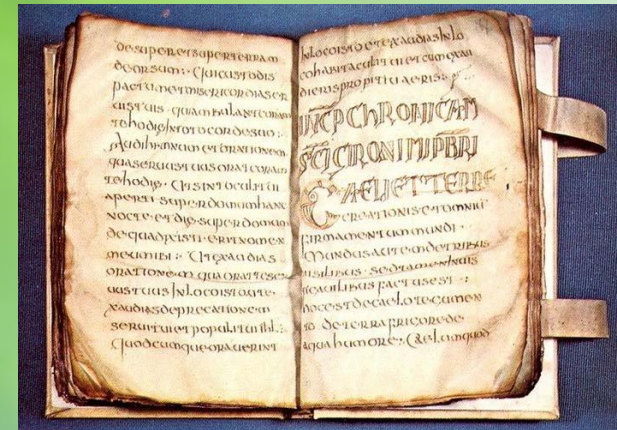 desuper et super terram
deorsum · Qui custodis
pactum et misericordias
tuis · qui ambulant coram
te hodie in toto corde suo :
Audi hymnum et orationem
quas servus tuus orat coram
te hodie · Ut sint oculi tui
aperti super domum hanc
nocte et die · super domum
de qua dixisti · erit nomen
meum ibi : Ut exaudias
orationem qua orat te ser
uus tuus In loco isto ad te ·
xaudias deprecationem
serui tui et populi tui Isl :
Quodcumque orauerint
In loco isto et exaudias In lo
co habitaculi tui et cum exau
dieris propitiu aeris :
INCP CHRONICAM
SCI CIRONIMI PBRI
CAELI ET TERRE
CREATIONIS ET OMNIU
FIRMAMENTUM MUNDI ·
Mundus autem de tribus
uisilibus · sed tamen
factus est :
hoc est de caelo tecumen
to de terra fricore de
aqua humore : Caelum quod